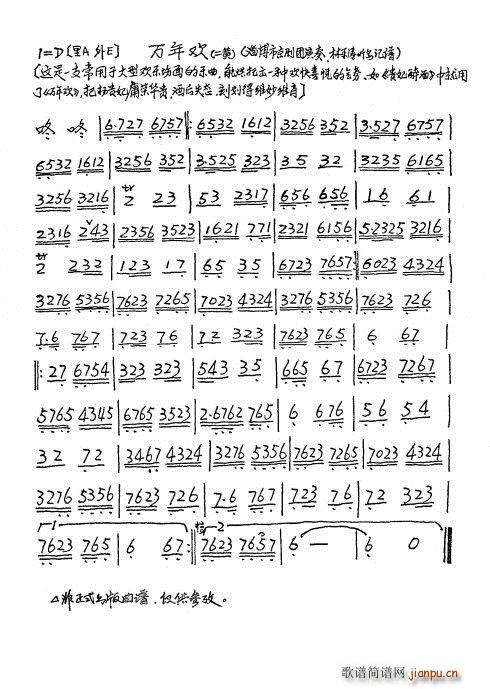 1=D〔里A 外E〕 万年欢 (二黄) (淄博市京剧团演奏、林
〔这是一支常用于大型欢乐场面的乐曲,能烘托出一种欢快喜悦的气氛。如《贵妃醉酒》中就用
了《万年欢》,把 贵妃 雍荣华贵、酒后失态,刻划得维妙维肖〕
咚 咚 | 6·727 6757 |: 6532 1612 | 3256 352 | 3·527 6757 |
6532 1612 | 3256 352 | 3·525 323 | 35 32 | 3235 6165 |
3256 3216 | 2 23 | 53 2317 | 656 656 | 16 61 |
2316 243 | 2356 3523 | 1621 771 | 2321 6156 | 5·2325 3216 |
2 232 | 123 17 | 65 35 | 6723 7657 :| 6023 4324 |
3276 5356 | 7623 7265 | 7023 4324 | 3276 5356 | 7623 726 |
7·6 767 | 723 76 | 72 323 | 7623 765 | 6 67 |
|: 27 6754 | 323 323 | 543 35 | 665 67 | 6723 7267 |
5765 4345 | 6765 3523 | 2·6762 765 | 6 676 | 56 54 |
32 72 | 3467 4324 | 3276 5356 | 7623 7265 | 7023 4324 |
3276 5356 | 7623 726 | 7·6 767 | 723 76 | 72 323 |
1 2
7623 765 | 6 67 :| 7623 7657 | 6 — | 6 0 ‖
△非正式出版曲谱,仅供参改。
歌谱简谱网
www.jianpu.cn